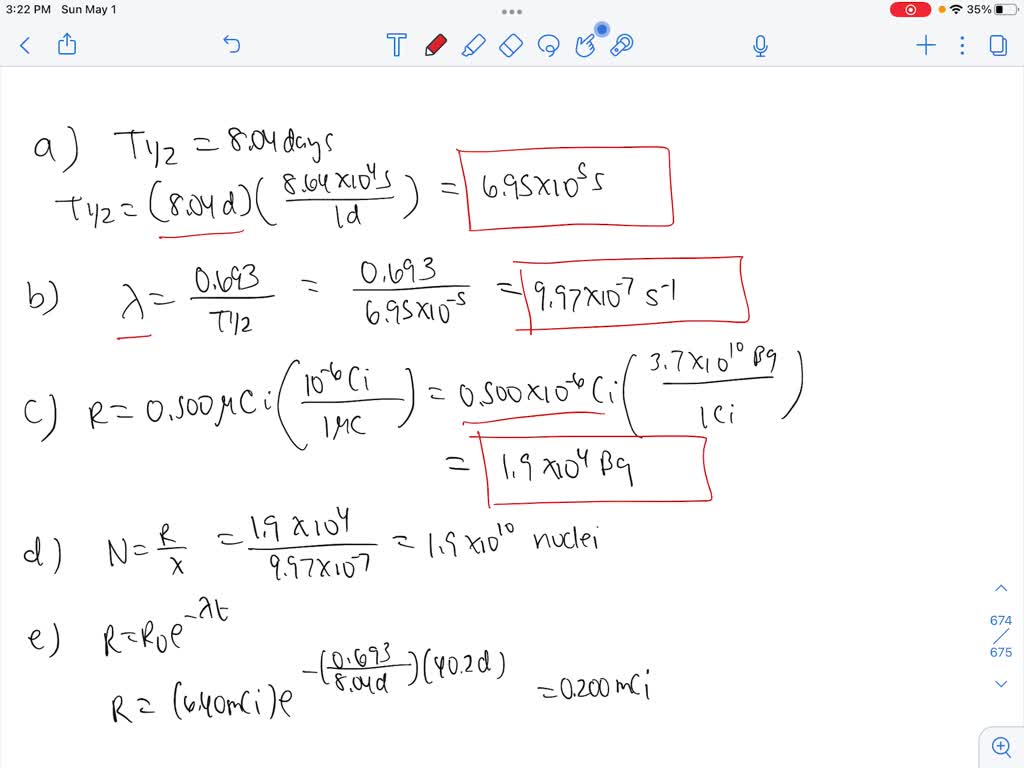 3:22 PM Sun May 1
35%
a) T1/2 = 8.04 days
T1/2 = (8.04 d) (8.64 x 10⁴ s / 1 d) = 6.95 x 10⁵ s
b) λ = 0.693 / T1/2 = 0.693 / 6.95 x 10⁻⁵ = 9.97 x 10⁻⁷ s⁻¹
c) R = 0.500 μCi (10⁻⁶ Ci / 1 μC) = 0.500 x 10⁻⁶ Ci (3.7 x 10¹⁰ Bq / 1 Ci)
= 1.9 x 10⁴ Bq
d) N = R / λ = 1.9 x 10⁴ / 9.97 x 10⁻⁷ = 1.9 x 10¹⁰ nuclei
e) R = R₀ e^(-λt)
R = (6.40 mCi) e^(-(0.693 / 8.04 d)(40.2 d)) = 0.200 mCi
674
675